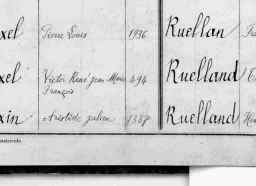 xel Pierre Louis 1936 Ruellan
xel Victor René Jean Marie 494 Ruelland
François
xin Aristide Julien 1358 Ruelland